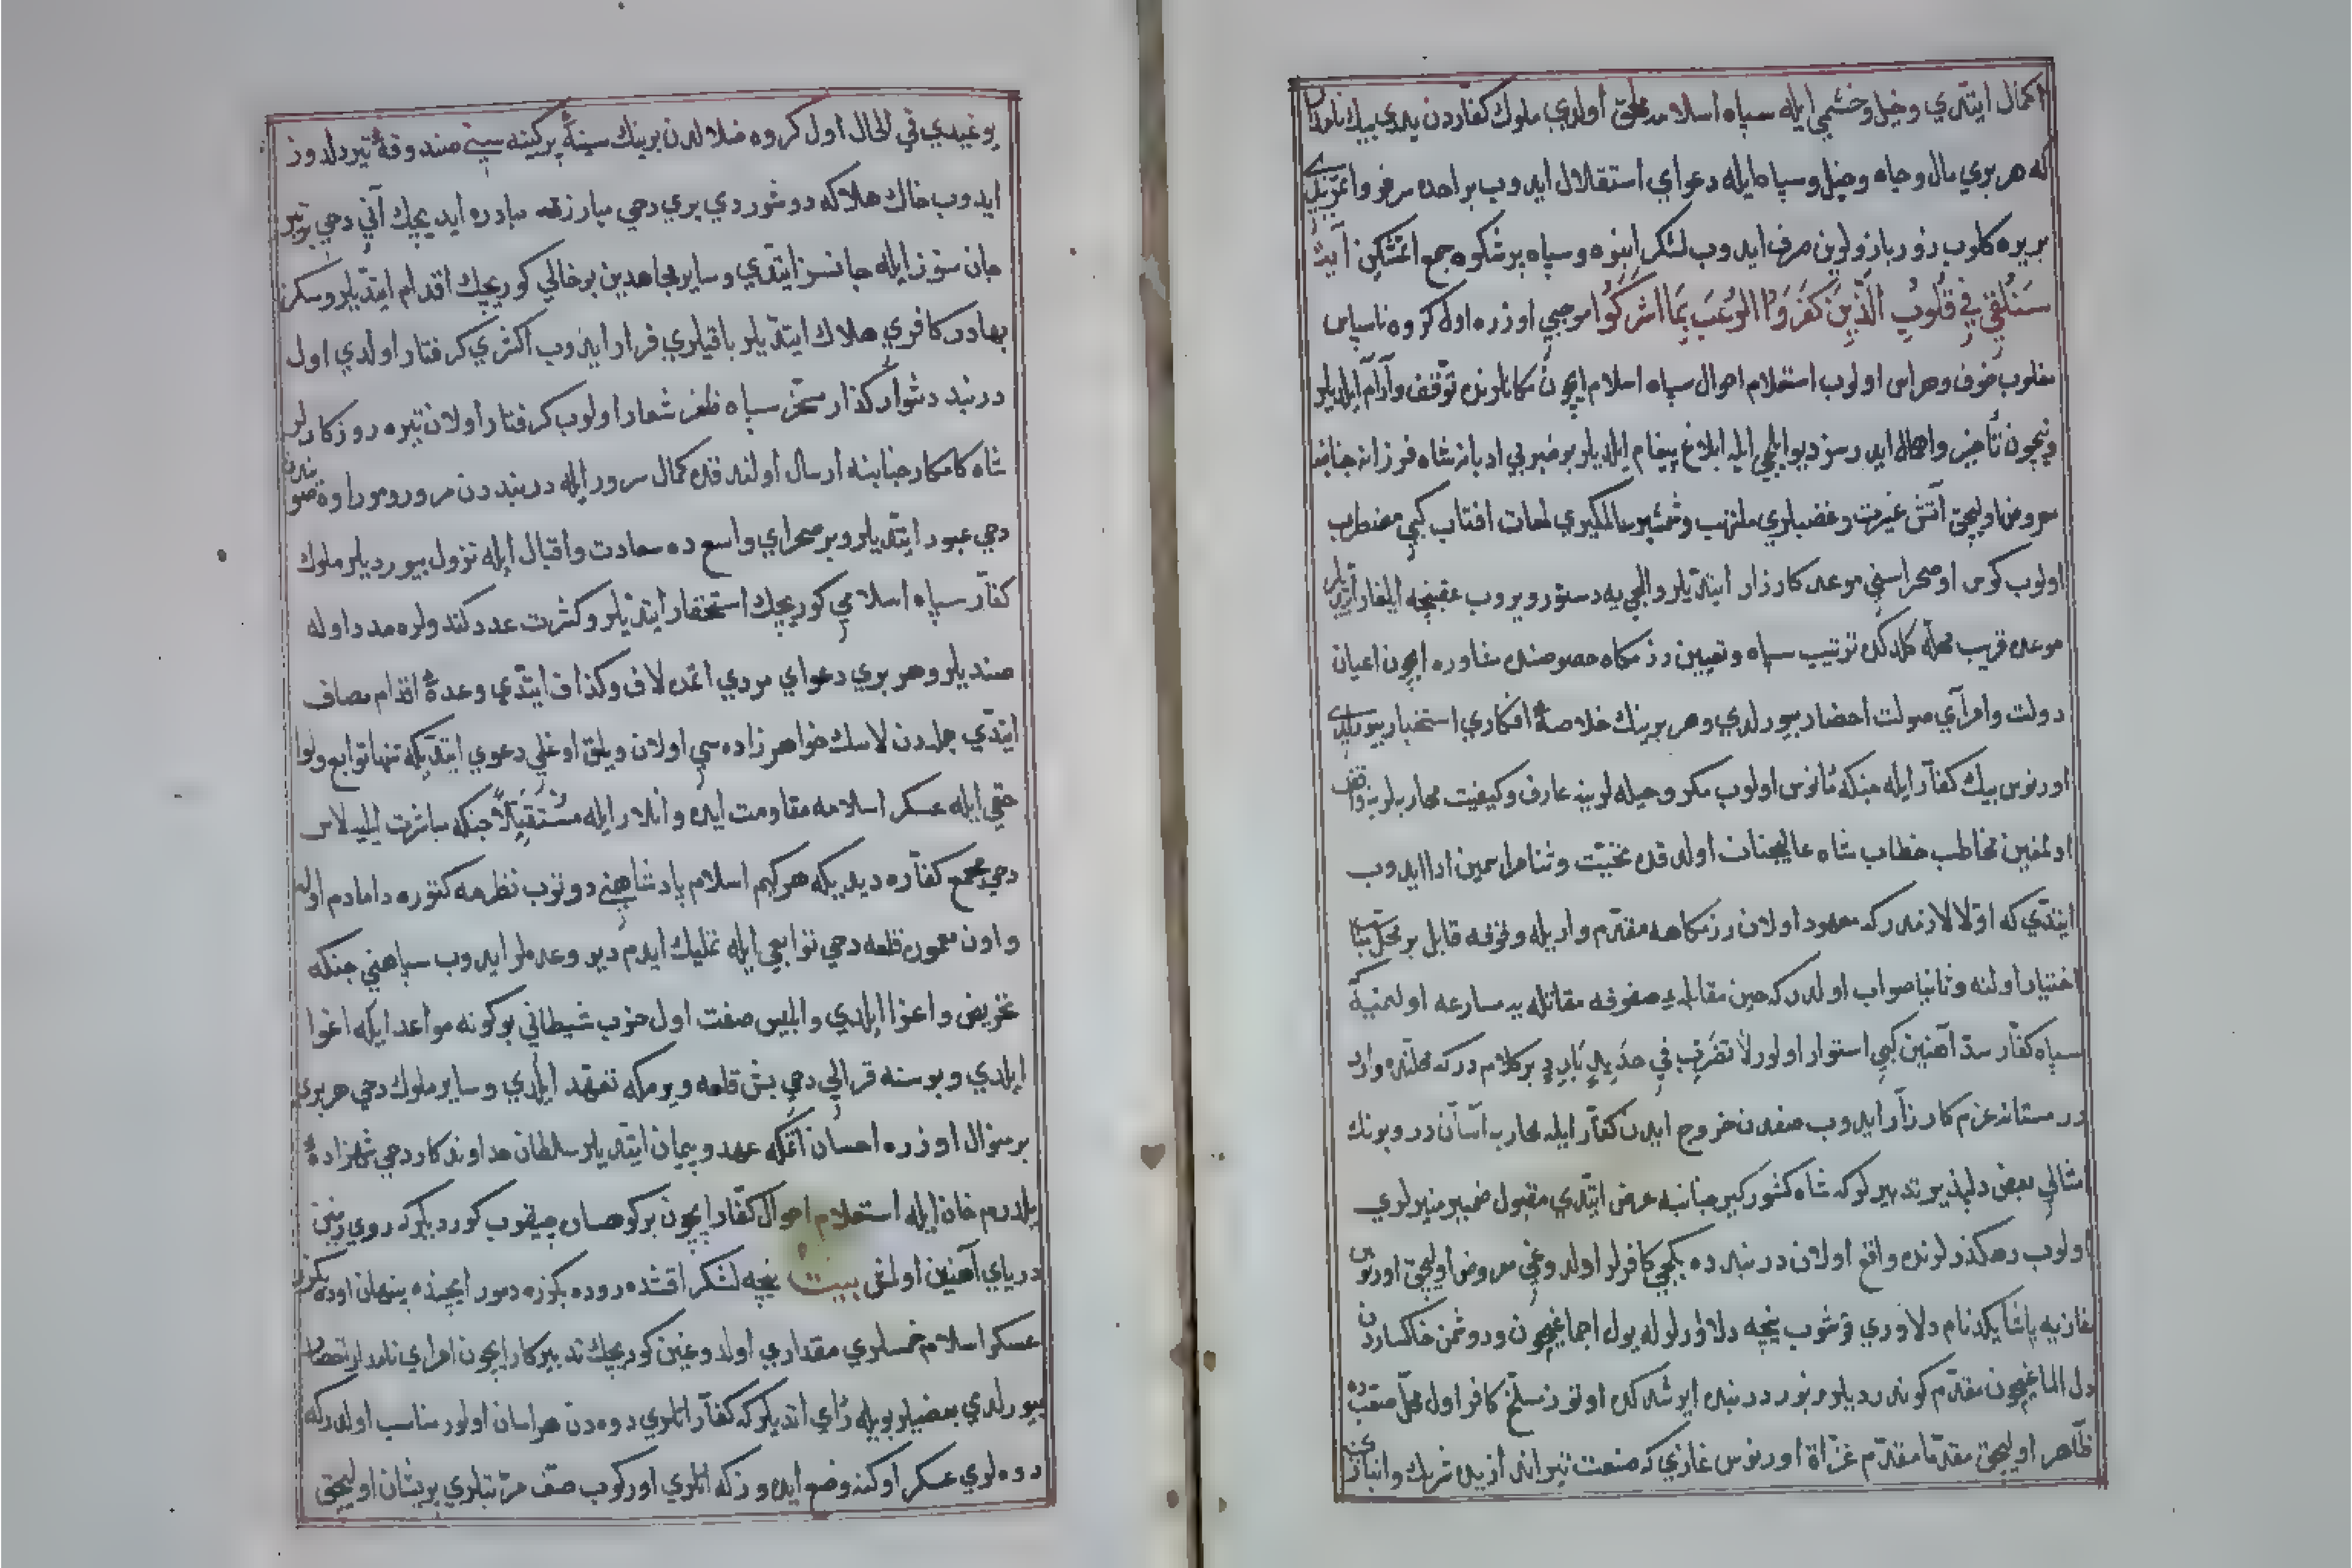 اكمال ايتدي وخيل وحشمي ايله سپاه اسلامه ملحق اولدي ملوك كفاردن يدي بيك نامدار
كه هر بري مال وجاه وخيل وسپاه ايله دعواي استقلال ايدوب براحده سرفرو اتمزيدي
بريره كلوب زور بازولرين صرف ايدوب لشكر انبوه وسپاه پرشكوه جمع اتمشكن آيت
سَنُلْقِي فِي قُلُوبِ الَّذِينَ كَفَرُوا الرُّعْبَ بِمَا اشْرَكُوا موجبي اوزره اول كروه ناسپاس
مغلوب خوف وهراس اولوب استعلام احوال سپاه اسلام ايچون مكانلرنده توقف وآرام ايلديلر
ونيچون تأخير واهمال ايدرسز ديو ايلچي ايله ابلاغ پيغام ايلديلر بو خبر بي ادبانه شاه فرزانه جنابنه
معروض اوليجق آتش غيرت وغضبلري ملتهب وشمشير عالمگيري لمعات افتاب كبي مضطرب
اولوب كوس اوصحراسني موعد كارزار ايتديلر وايلچي يه دستور ويروب عقبنجه ايلغار ايتديلر
موعده قريب محله كلدكده ترتيب سپاه وتعيين رزمكاه خصوصنده مشاوره ايچون اعيان
دولت وامرآي صولت احضار بيورلدي وهر برينك خلاصهٔ افكاري استخبار بيورلدي
اورنوس بيك كفار ايله جنكه مأنوس اولوب مكر وحيله لرينه عارف وكيفيت محاربه لرينه واقف
اولمغين مخاطب خطاب شاه عاليجناب اولدقده تحيت وثنا مراسمين ادا ايدوب
ايتدي كه اولا لازمدر كه معهود اولان رزمكاهه مقدم واريله وقوفه قابل بر محل
اختيار اولنه وثانيا صواب اولدر كه حين مقابله ده صفوفه مقاتله يه مسارعه اولنميه
سپاه كفار سد آهنين كبي استوار اولور لا تضرب في حديد بارد بر كلام در كه محلنده وارد
در مستانه عزم كارزار ايدوب صفدن خروج ايدن كفار ايله محاربه آسان در وبونك
امثالي بعض دلپذير تدبيرلر كه شاه كشوركير جنابنه عرض ايتدي مقبول ضمير منيرلري
اولوب رهكذرلرنده واقع اولان دربنده بكجي كافرلر اولدوغي معروض اوليجق اورنوس
غازيه پاشا يكد نام دلاوري قوشوب نيچه دلاورلرله يول اچماغيچون ودوشمن خاكساردن
دل الماغيچون مقدم كوندرديلر مزبور دربنده ايرشدكده اوتوز مسلح كافر اول محل صعبده
ظاهر اوليجق مقدما مقدم غزاة اورنوس غازي كه صنعت تير اندازيده شريك وانبازي
يوغيدي في الحال اول كروه ضلالدن برينك سينهٔ پركينه سني صندوقهٔ تير دلدوز
ايدوب خاك هلاكه دوشوردي بري دخي مبارزته مبادره ايديجك آني دخي بر تير
جان ستوز ايله جانسز ايتدي وساير مجاهدين بو حالي كوريجك اقدام ايتديلر وسكز
بهادر كافري هلاك ايتديلر باقيلري فرار ايدوب اكثري كرفتار اولدي اول
دربند دشوار كذار مسخر سپاه ظفر شعار اولوب كرفتار اولان تيره روزكارلر
شاه كامكار جنابنه ارسال اولندقده كمال سرور ايله دربنددن مرور وموراوه صويندن
دخي عبور ايتديلر وبر صحراي واسعده سعادت واقبال ايله نزول بيورديلر ملوك
كفار سپاه اسلامي كوريجك استحقار ايتديلر وكثرت عدد كندولره مدد اوله
صنديلر وهر بري دعواي مردي اتمده لاف وكذاف ايتدي وعدهٔ اقدام مصاف
ايتدي جمله دن لاسك خواهرزاده سي اولان ويلق اوغلي دعوي ايتديكه تنها توابع ولوا
حقي ايله عسكر اسلامه مقاومت ايده وانلار ايله مُسْتَقِلاً جنكه مباشرت ايليه لاس
دخي مجمع كفارده ديديكه هر كيم اسلام پادشاهني دوتوب نظرمه كتوره دامادم اوله
واون معموره قلعه دخي توابعي ايله تمليك ايدم ديو وعده لر ايدوب سپاهني جنكه
تحريض واغرا ايلدي وابليس صفت اول حزب شيطاني بو كونه مواعد ايله اغوا
ايلدي وبوسنه قرالي دخي بش قلعه ويرمكه تعهد ايلدي وساير ملوك دخي هر بري
بر منوال اوزره احسان اتمكه عهد وپيمان ايتديلر سلطان خداوندكار دخي شهزاده
يلدرم خان ايله استعلام احوال كفار ايچون بر كوهسان چيقوب كورديلر كه روي زمين
درياي آهنين اولمش بيت نيچه لشكر اقشده روده بكزه دمور ايچنده پنهان اوده بكزر
عسكر اسلام خمسلري مقداري اولدوغين كوريجك تدبير كار ايچون امراي نامدار احضار
بيورلدي بعضيلر بويله رأي اتديلر كه كفار اتلري دوه دن هراسان اولور مناسب اولدر كه
دوه لري عسكر اوكنه وضع ايده وز كه اتلري اوركوب صف مرتبلري پريشان اوليجق